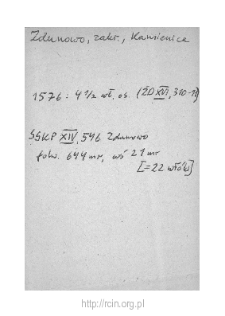 Zdunowo, zakr., Kamienica
1576 - 4 1/2 wł. os. (ŹD XVI, 310-11)
SGKP XIV, 546 Zdunowo
folw. 644 mr, wś 21 mr
[=22 włók]
http://rcin.org.pl